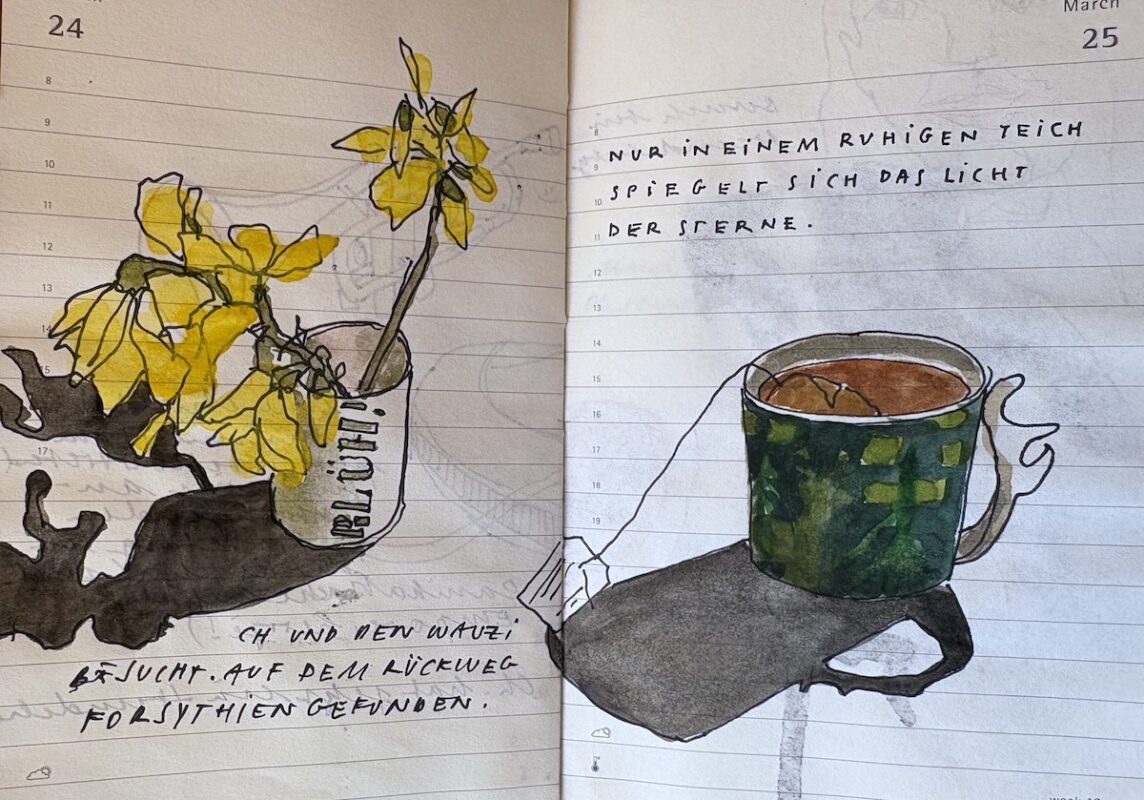 24
8
9
10
11
12
13
14
15
17
BLÜH!
CH UND DEN WAUZI
BESUCHT. AUF DEM RÜCKWEG
FORSYTHIEN GEFUNDEN.
March
25
8
NUR IN EINEM RUHIGEN TEICH
9
SPIEGELT SICH DAS LICHT
10
DER STERNE.
11
12
13
14
15
16
17
18
19